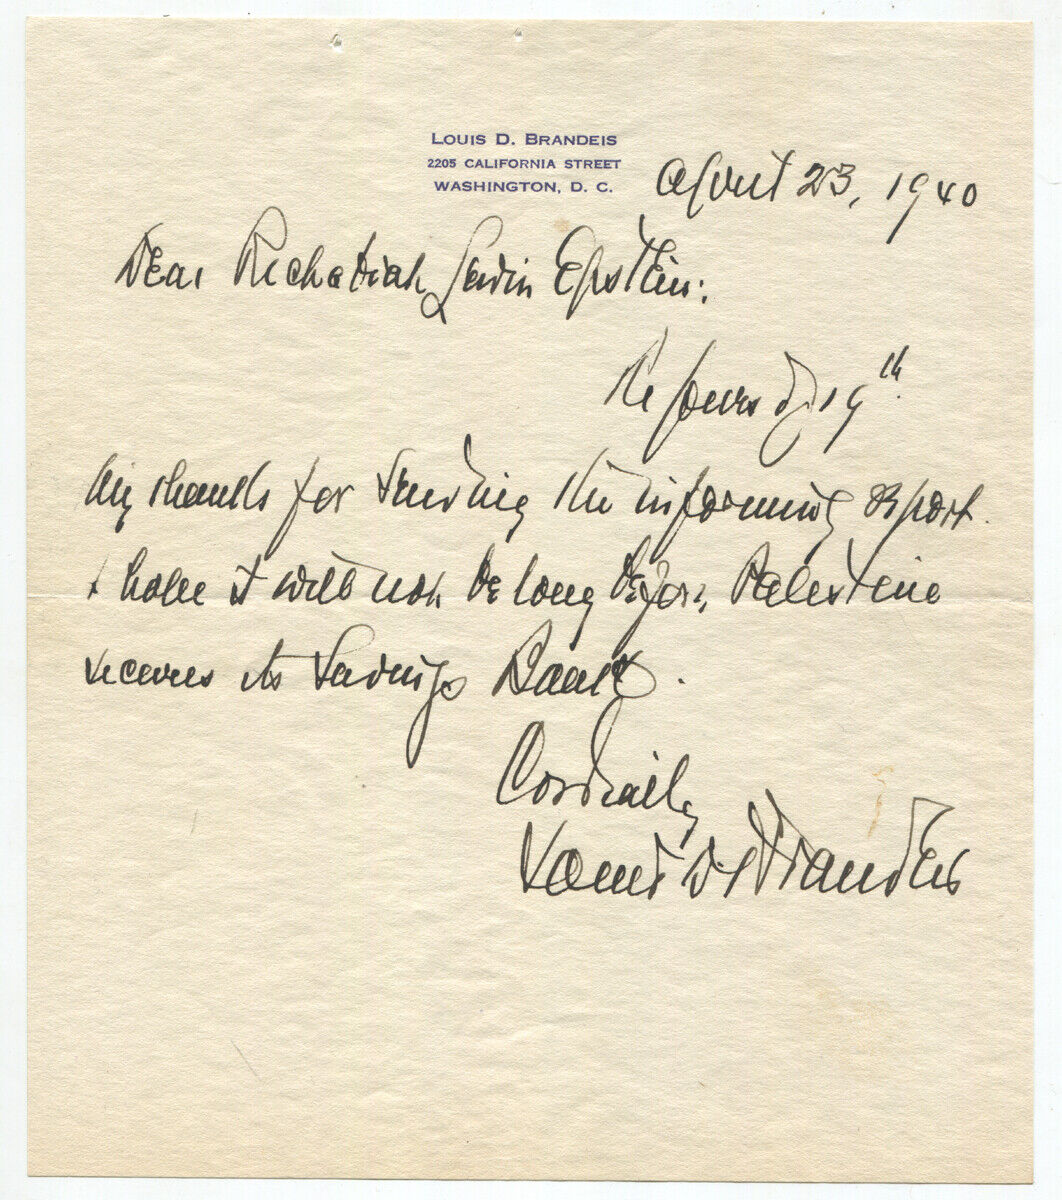 LOUIS D. BRANDEIS
2205 CALIFORNIA STREET
WASHINGTON, D. C.
April 23, 1940
Dear Rechabiah Lewin Epstein:
Re yours of 19th
My thanks for sending the informing report.
I hope it will not be long before Palestine
secures its Savings Bank.
Cordially
Louis D. Brandeis